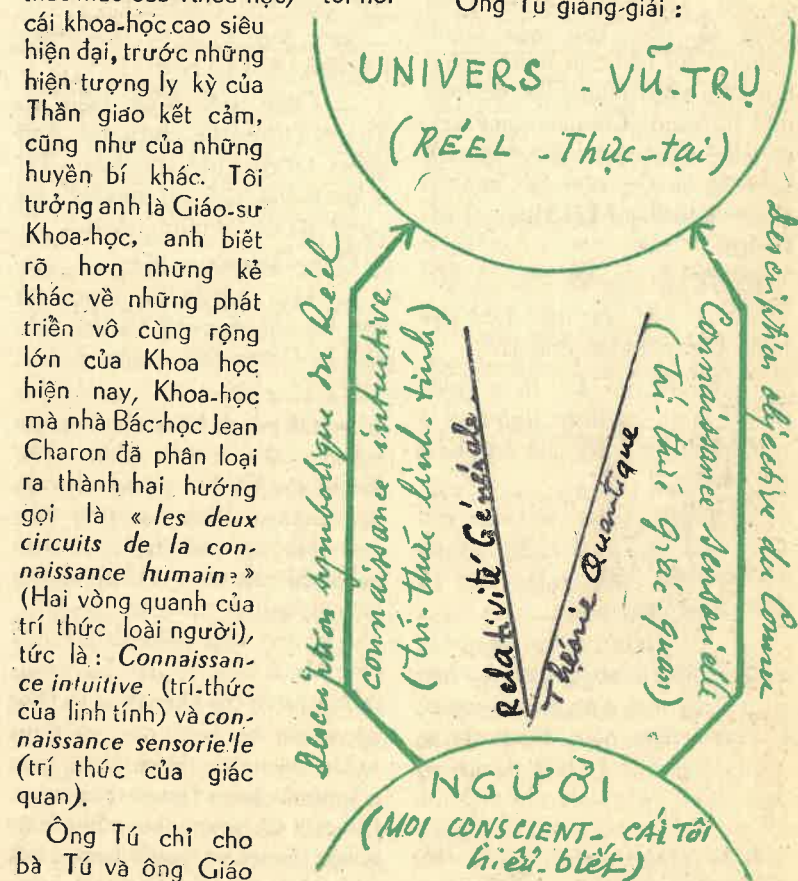 cái khoa-học cao siêu
hiện đại, trước những
hiện tượng ly kỳ của
Thần giao kết cảm,
cũng như của những
huyền bí khác. Tôi
tưởng anh là Giáo-sư
Khoa-học, anh biết
rõ hơn những kẻ
khác về những phát
triển vô cùng rộng
lớn của Khoa học
hiện nay, Khoa-học
mà nhà Bác-học Jean
Charon đã phân loại
ra thành hai hướng
gọi là «les deux
circuits de la con-
naissance humaine»
(Hai vòng quanh của
trí thức loài người),
tức là: Connaissan-
ce intuitive (trí-thức
của linh tính) và con-
naissance sensorielle
(trí thức của giác
quan).
Ông Tú chỉ cho
bà Tú và ông Giáo
Ông Tú giảng-giải :
UNIVERS - VŨ-TRỤ
(RÉEL - Thực-tại)
Description symbolique du Réel
connaissance intuitive
(trí-thức linh-tính)
Relativité Générale
Théorie Quantique
(trí-thức giác-quan)
Connaissance sensorielle
Description objective du Connu
NGƯỜI
(MOI CONSCIENT - CÁI TÔI
hiểu-biết)